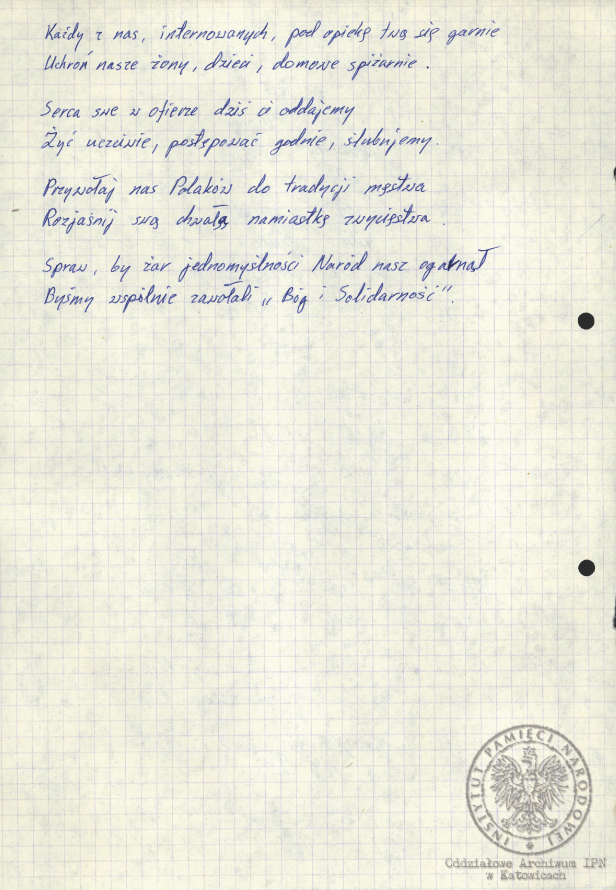 Każdy z nas, internowanych, pod opiekę twą się garnie
Uchroń nasze żony, dzieci, domowe spiżarnie.
Serca swe w ofierze dziś ci oddajemy
Żyć uczciwie, postępować godnie, ślubujemy.
Przywołaj nas Polaków do tradycji męstwa
Rozjaśnij swą chwałą namiastkę zwycięstwa.
Spraw, by żar jednomyślności Naród nasz ogarnął
Byśmy wspólnie zawołali „Bóg i Solidarność".
INSTYTUT PAMIĘCI NARODOWEJ
Oddziałowe Archiwum IPN
w Katowicach